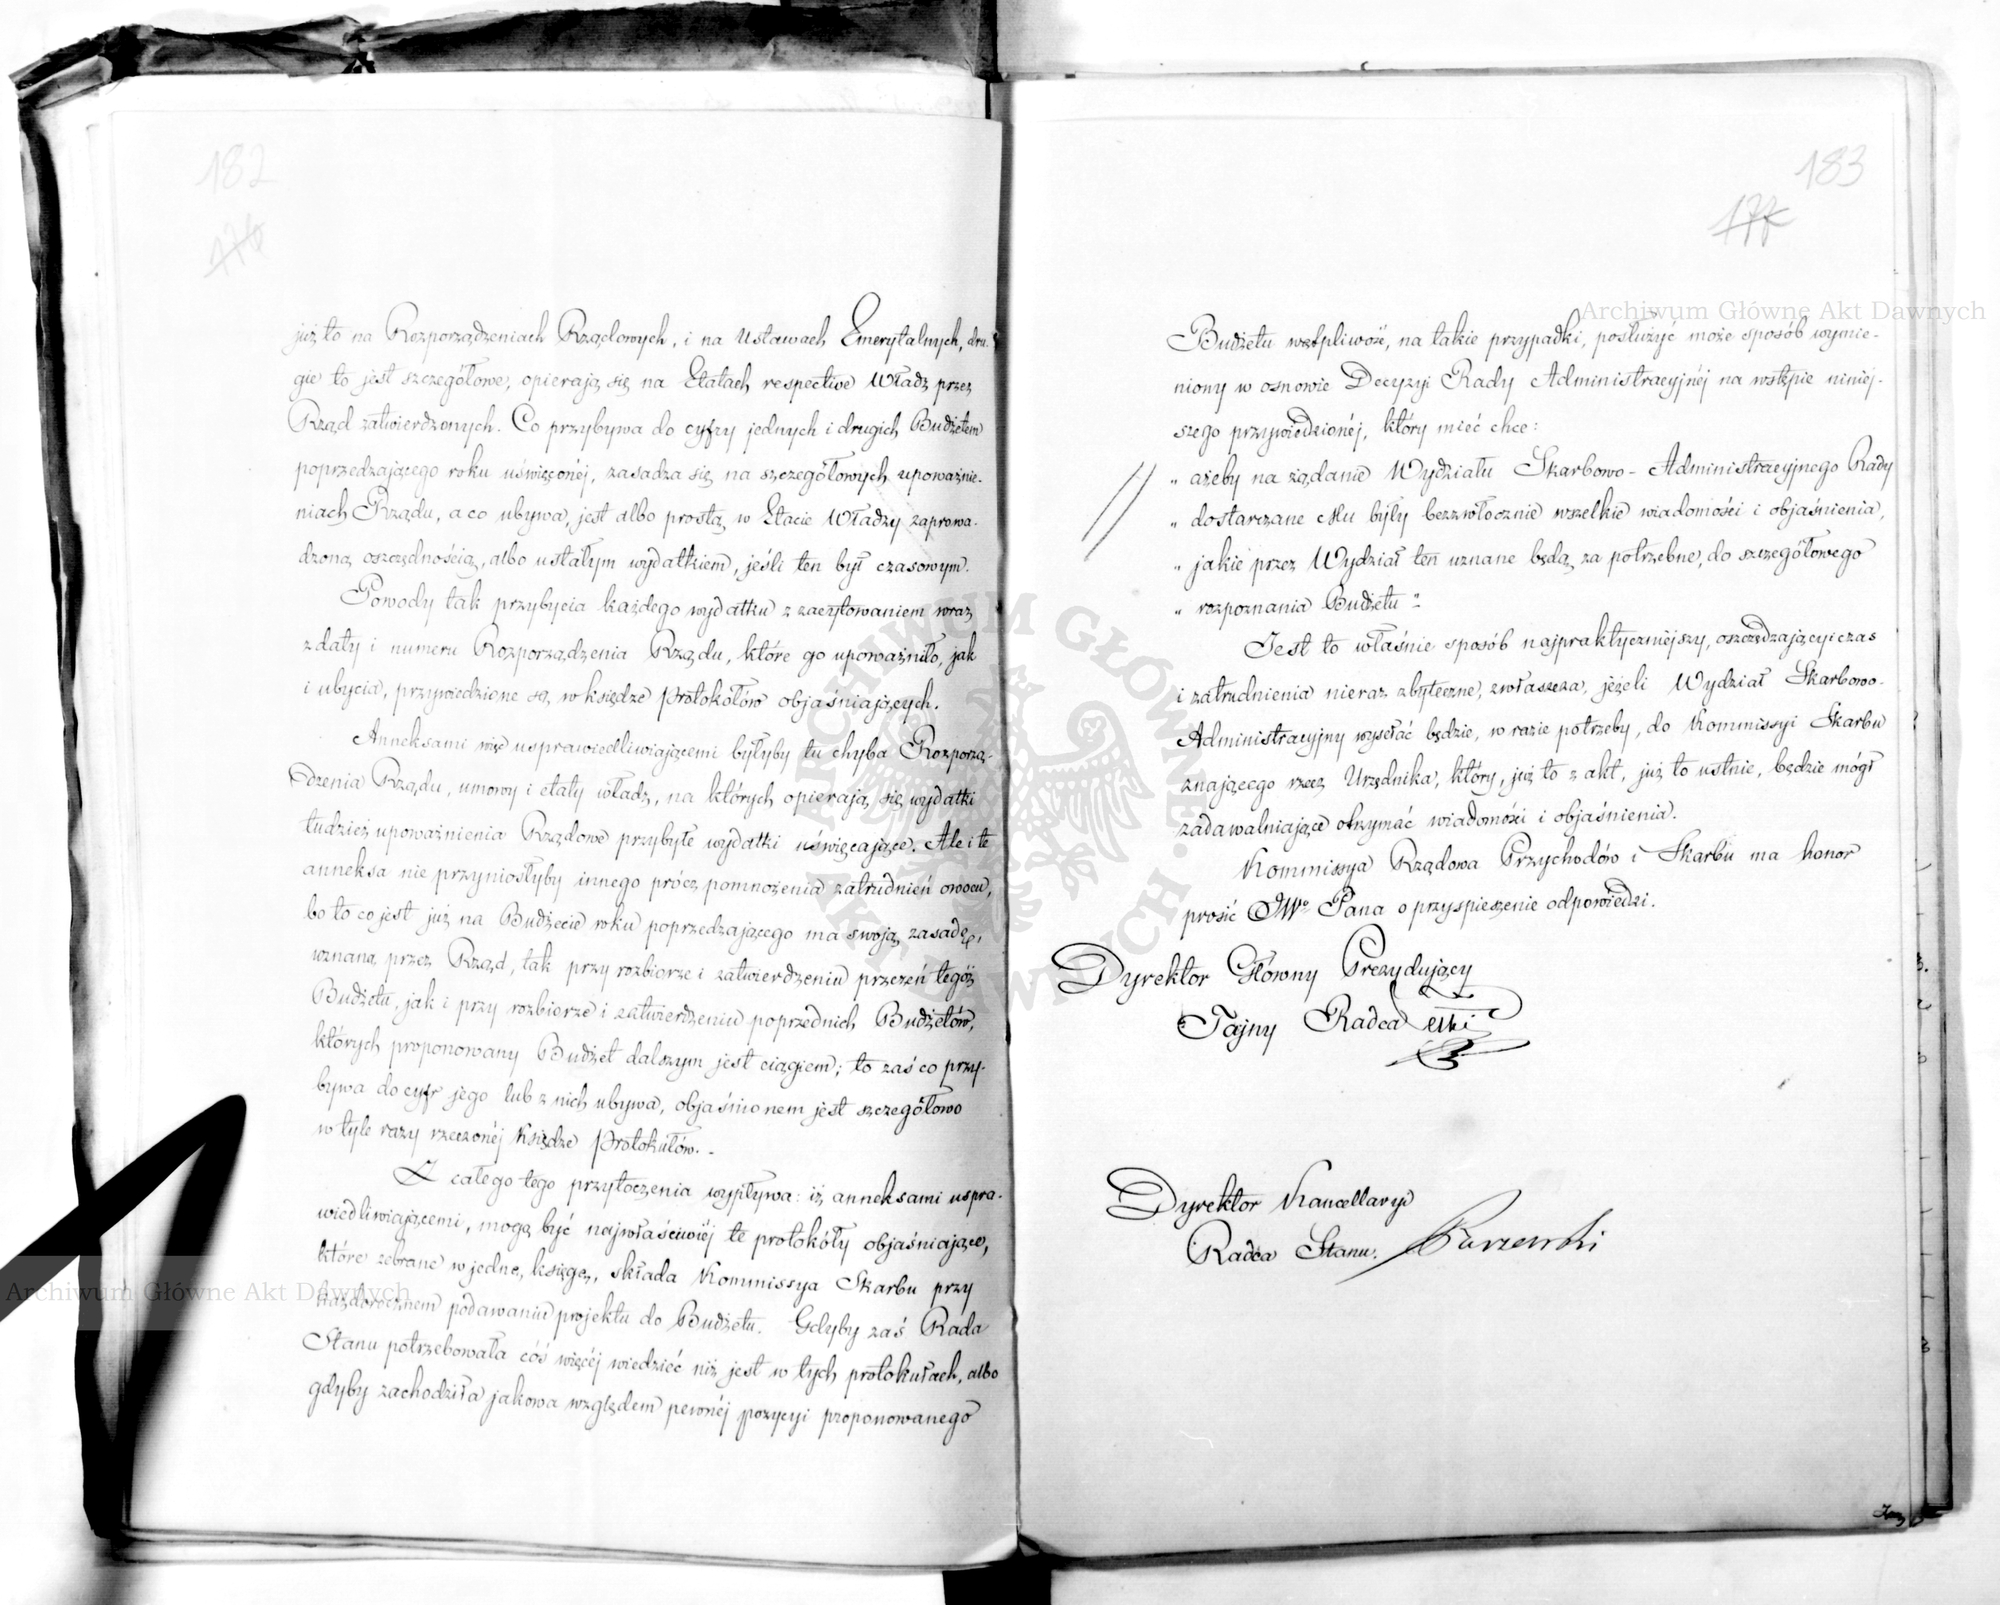 182
176
już to na Rozporządzeniach Rządowych, i na Ustawach Emerytalnych, dru-
gie to jest szczegółowe, opierają się na Etatach respective Władz przez
Rząd zatwierdzonych. Co przybywa do cyfry jednych i drugich Budżetem
poprzedzającego roku uświęconéj, zasadza się na szczegółowych upoważnie-
niach Rządu, a co ubywa, jest albo prostą w Etacie Władzy zaprowa-
dzoną oszczędnością, albo ustałym wydatkiem, jeśli ten był czasowym.
Powody tak przybycia każdego wydatku z zacytowaniem wraz
z daty i numeru Rozporządzenia Rządu, które go upoważniło, jak
i ubycia, przywiedzione są w księdze protokółów objaśniających.
Anneksami więc usprawiedliwiającemi byłyby tu chyba Rozporzą-
dzenia Rządu, umowy i etaty władz, na których opierają się wydatki
tudzież upoważnienia Rządowe przybyłe wydatki uświęcające. Ale i te
anneksa nie przyniosłyby innego prócz pomnożenia zatrudnień owocu,
bo to co jest już na Budżecie roku poprzedzającego ma swoją zasadę,
uznaną przez Rząd, tak przy rozbiorze i zatwierdzeniu przezeń tegóż
Budżetu, jak i przy rozbiorze i zatwierdzeniu poprzednich Budżetów,
których proponowany Budżet dalszym jest ciągiem; to zaś co przy-
bywa do cyfr jego lub z nich ubywa, objaśnionem jest szczegółowo
w tyle razy rzeczonéj Księdze Protokułów. -
Z całego tego przytoczenia wypływa: iż anneksami uspra-
wiedliwiającemi, mogą być najwłaściwiéj te protokóły objaśniające,
które zebrane w jedne, księgę, składa Kommissya Skarbu przy
każdorocznem podawaniu projektu do Budżetu. Gdyby zaś Rada
Stanu potrzebowała cóś więcéj wiedzieć niż jest w tych protokułach, albo
gdyby zachodziła jakowa względem pewnéj pozycyi proponowanego
183
177
Budżetu wątpliwość, na takie przypadki, posłużyć może sposób wymie-
niony w osnowie Decyzyi Rady Administracyjnéj na wstępie niniéj-
szego przywiedzionéj, który mieć chce:
„ ażeby na żądanie Wydziału Skarbowo-Administracyjnego Rady
„ dostarczane Mu były bezzwłocznie wszelkie wiadomości i objaśnienia,
„ jakie przez Wydział ten uznane będą za potrzebne, do szczegółowego
„ rozpoznania Budżetu"
Jest to właśnie sposób najpraktyczniejszy, oszczędzający i czas
i zatrudnienia nieraz zbyteczne, zwłaszcza, jeżeli Wydział Skarbowo-
Administracyjny wysełać będzie, w razie potrzeby, do Kommissyi Skarbu
znającego rzecz Urzędnika, który, już to z akt, już to ustnie, będzie mógł
zadawalniające otrzymać wiadomości i objaśnienia.
Kommissya Rządowa Przychodów i Skarbu ma honor
prosić JWo Pana o przyspieszenie odpowiedzi.
Dyrektor Główny Prezydujący
Tajny Radca
Dyrektor Kancellaryi
Radca Stanu.
Archiwum Główne Akt Dawnych
Archiwum Główne Akt Dawnych
ARCHIWUM GŁÓWNE AKT DAWNYCH